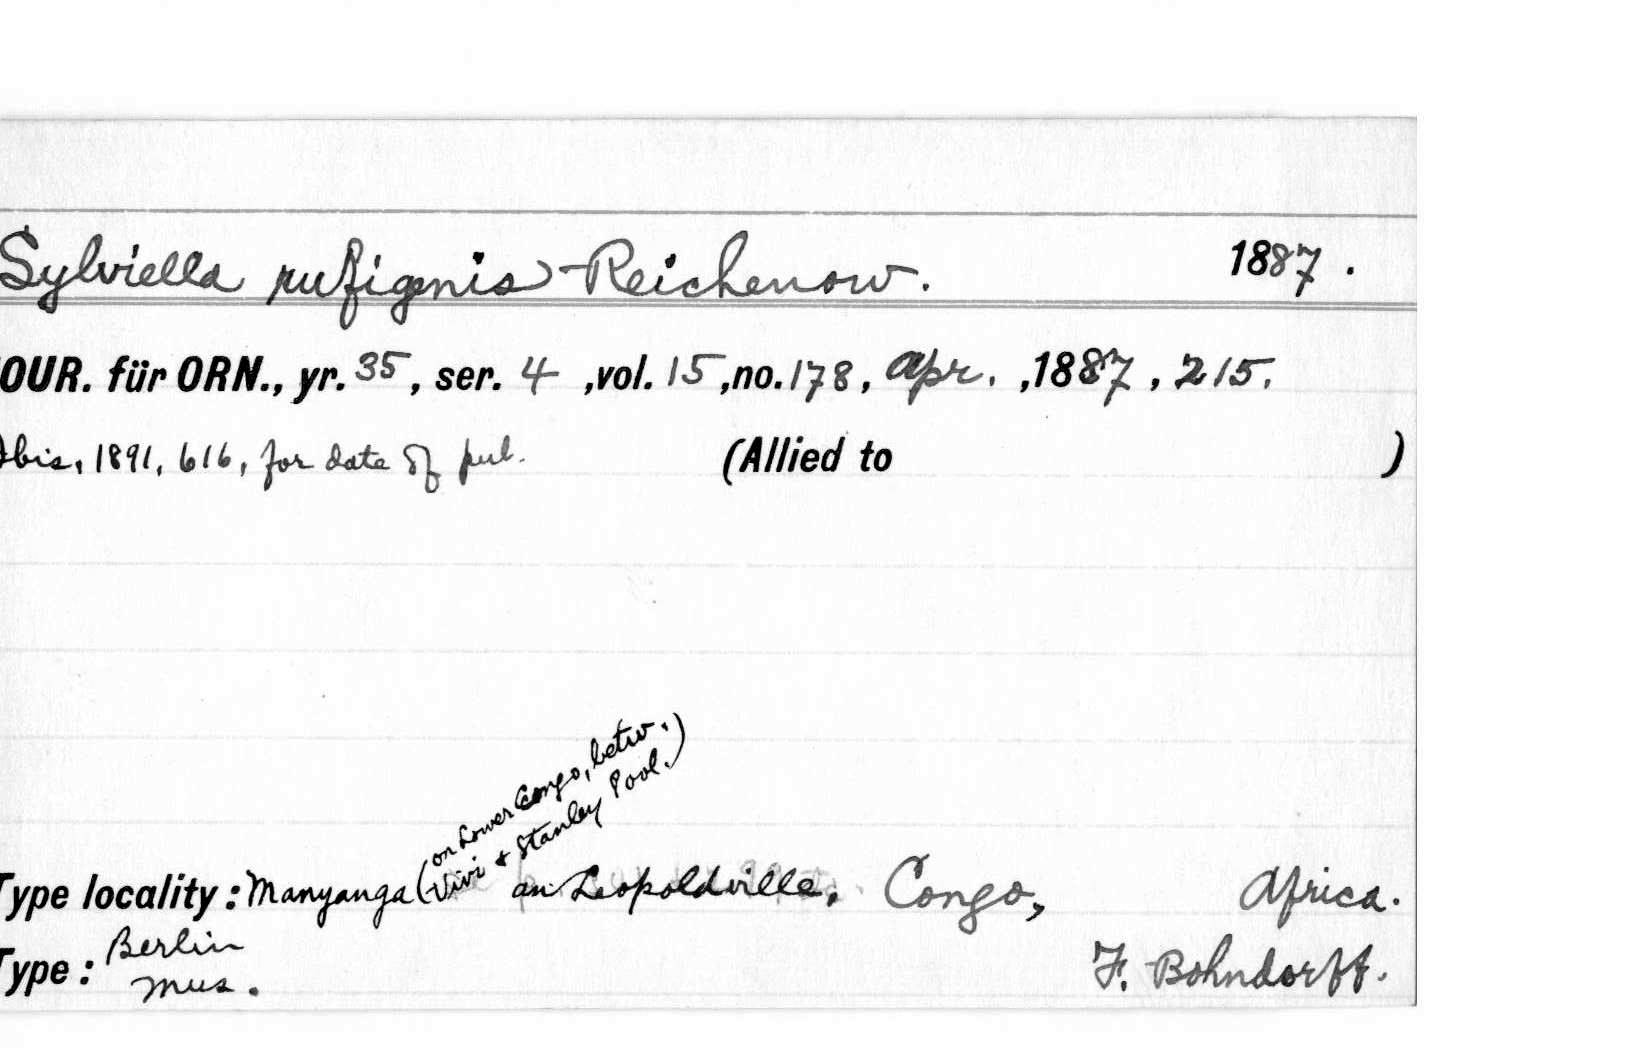 Sylviella rufigenis Reichenow. 1887.
OUR. für ORN., yr. 35, ser. 4 ,vol. 15 ,no. 178, Apr. ,1887 , 215.
Ibis, 1891, 616, for date of pub. (Allied to )
(on Lower Congo, betw.
Vivi & Stanley Pool.)
Type locality : Manyanga an Leopoldville, Congo, Africa.
Type : Berlin
Mus. F. Bohndorff.